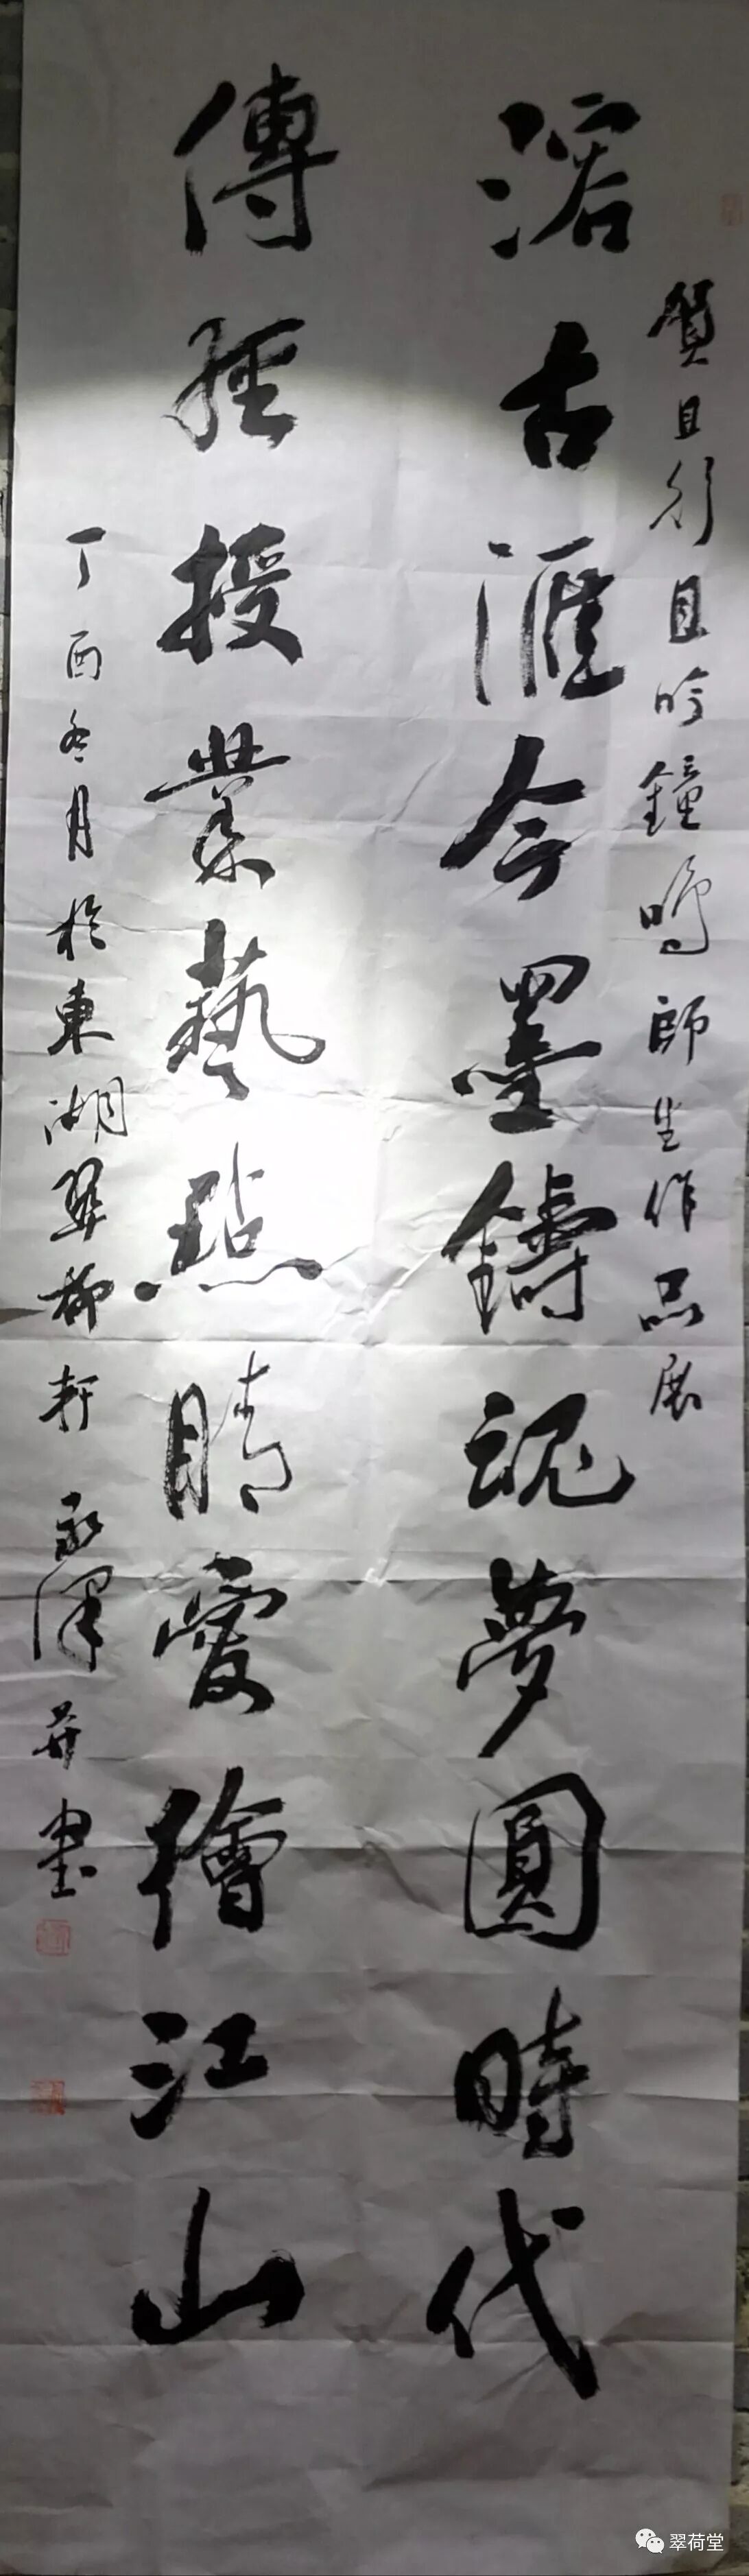 賀且行且吟鐘鳴師生作品展
溶古滙今墨鑄魂夢圓時代
傳經授業藝點睛愛繪江山
丁酉冬月於東湖翠柳軒永澤并書
翠荷堂